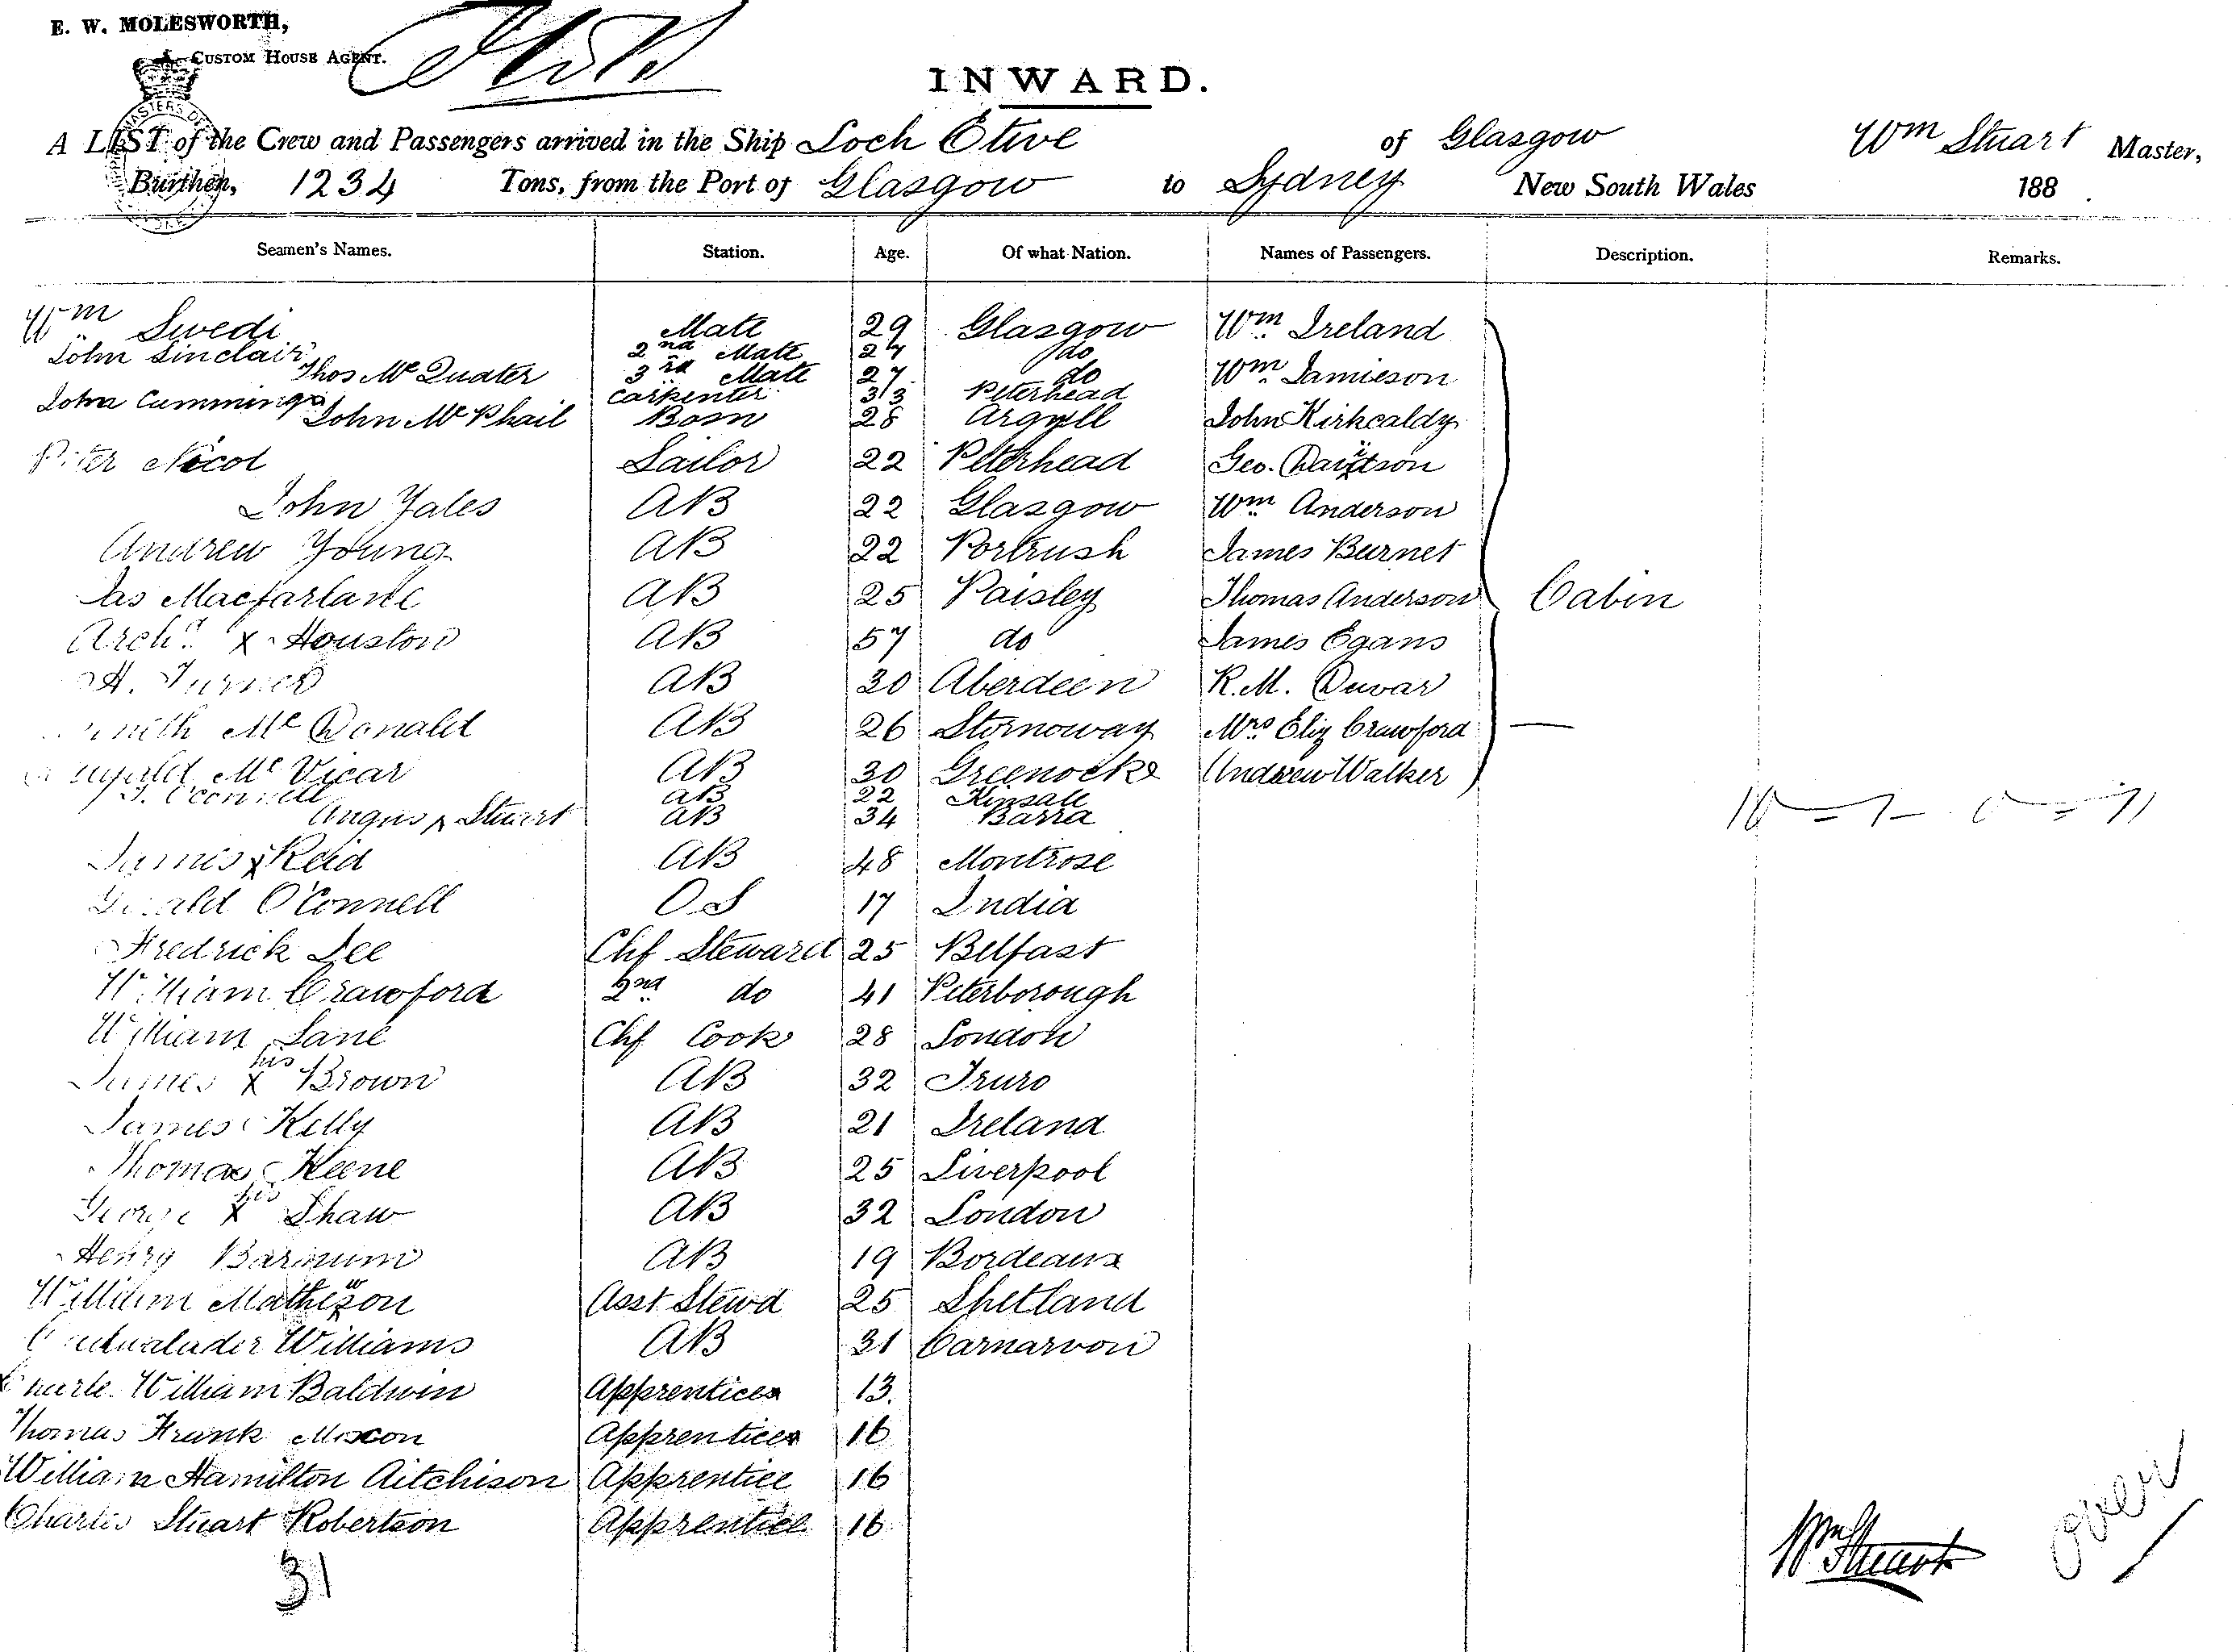 E. W. MOLESWORTH,
CUSTOM HOUSE AGENT.
INWARD.
A LIST of the Crew and Passengers arrived in the Ship Loch Etive of Glasgow Wm Stuart Master,
Burthen, 1234 Tons, from the Port of Glasgow to Sydney New South Wales 188
Seamen's Names. Station. Age. Of what Nation. Names of Passengers. Description. Remarks.
Wm Swedi Mate 29 Glasgow Wm Ireland
John Sinclair 2nd Mate 24 do
Thos Mc Quater 3rd Mate 27 do Wm Jamieson
John Cummings Carpenter 33 Peterhead
John Mc Phail Bosn 28 Argyll John Kirkcaldy
Peter Nicol Sailor 22 Peterhead Geo.
John Yales AB 22 Glasgow Wm Anderson
Andrew Young AB 22 Portrush James Burnet
Jas Macfarlane AB 25 Paisley Thomas Anderson Cabin
Archd X Houston AB 57 do James Egans
A. Turner AB 30 Aberdeen R.M. Duvar
Mc Donald AB 26 Stornoway Mrs Eliz Crawford —
Mc Vicar AB 30 Greenock Andrew Walker
AB 22 Kinsale
Angus X Stuart AB 34 Barra
James X Reid AB 48 Montrose
Gerald O'Connell OS 17 India
Fredrick Lee Chf Steward 25 Belfast
William Crawford 2nd do 41 Peterborough
William Lane Chf Cook 28 London
his
James X Brown AB 32 Truro
James Kelly AB 21 Ireland
Thomas Keene AB 25 Liverpool
his
George X Shaw AB 32 London
Henry AB 19 Bordeaux
William Mathewson Asst Stewd 25 Shetland
Cadwalader Williams AB 31 Carnarvon
Charles William Baldwin Apprentice 13.
Thomas Frank Moxon Apprentice 16
William Hamilton Aitchison Apprentice 16
Charles Stuart Robertson Apprentice 16
31
Wm Stuart